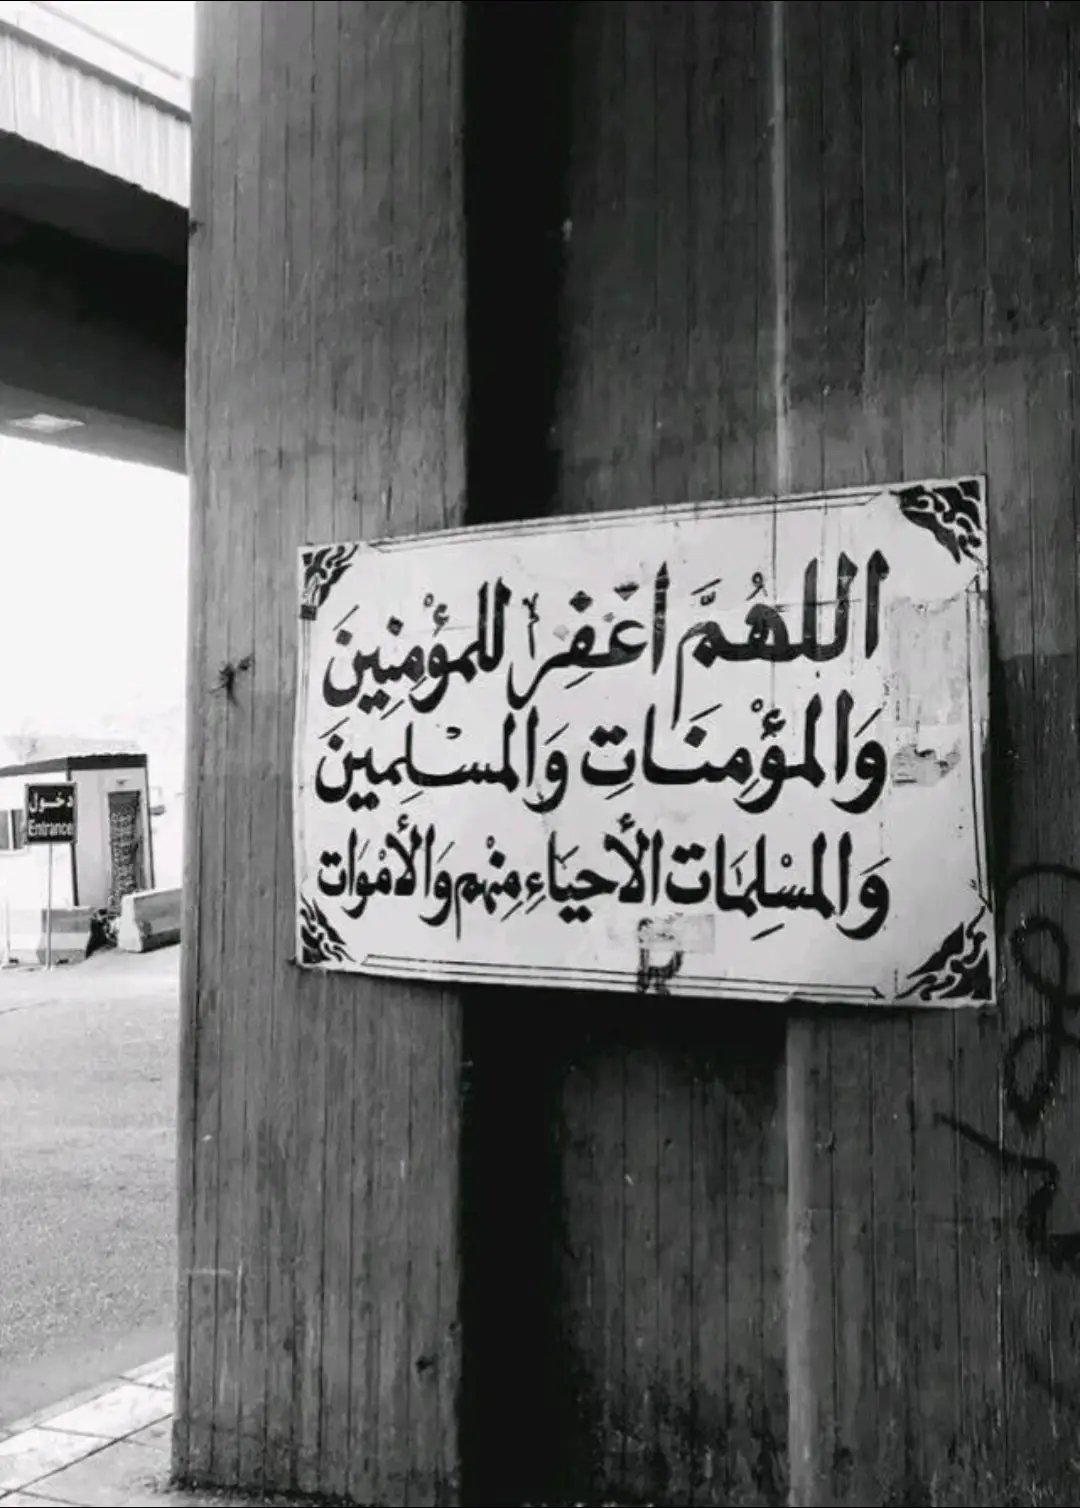 اللهُمَّ اغفِرْ للمؤْمِنِينَ
وَالمؤْمِنَاتِ وَالمسْلِمِينَ
وَالمسْلِمَات الأَحيَاءِ مِنْهم وَالأَمْوَات
دخول
Entrance